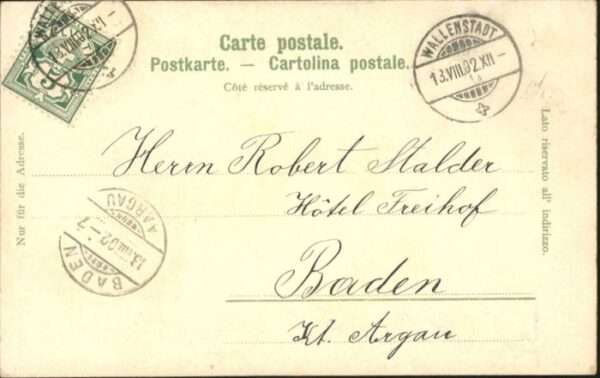 WALLENSTADT
13.VIII.02.XII-
5
Carte postale.
Postkarte. — Cartolina postale.
Côté réservé à l'adresse.
WALLENSTADT
13.VIII.02.XII-
Nur für die Adresse.
Lato riservato all' indirizzo.
Herrn Robert Stalder
Hôtel Freihof
Baden
Kt. Argau
BADEN
13.VIII.02.-7
AARGAU